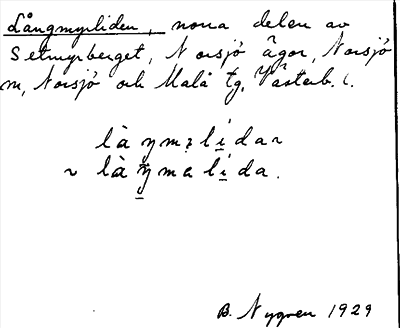 Långmyrliden, norra delen av
Setmyrberget, Norsjö ägor, Norsjö
sn, Norsjö och Malå tg, Västerb. l.
B. Nygren 1929